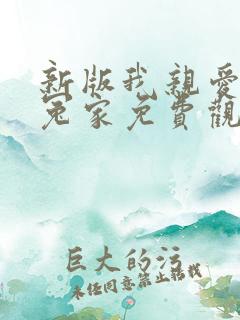 新版我親愛
冤家免費觀
巨大的污
未经同意禁止转载